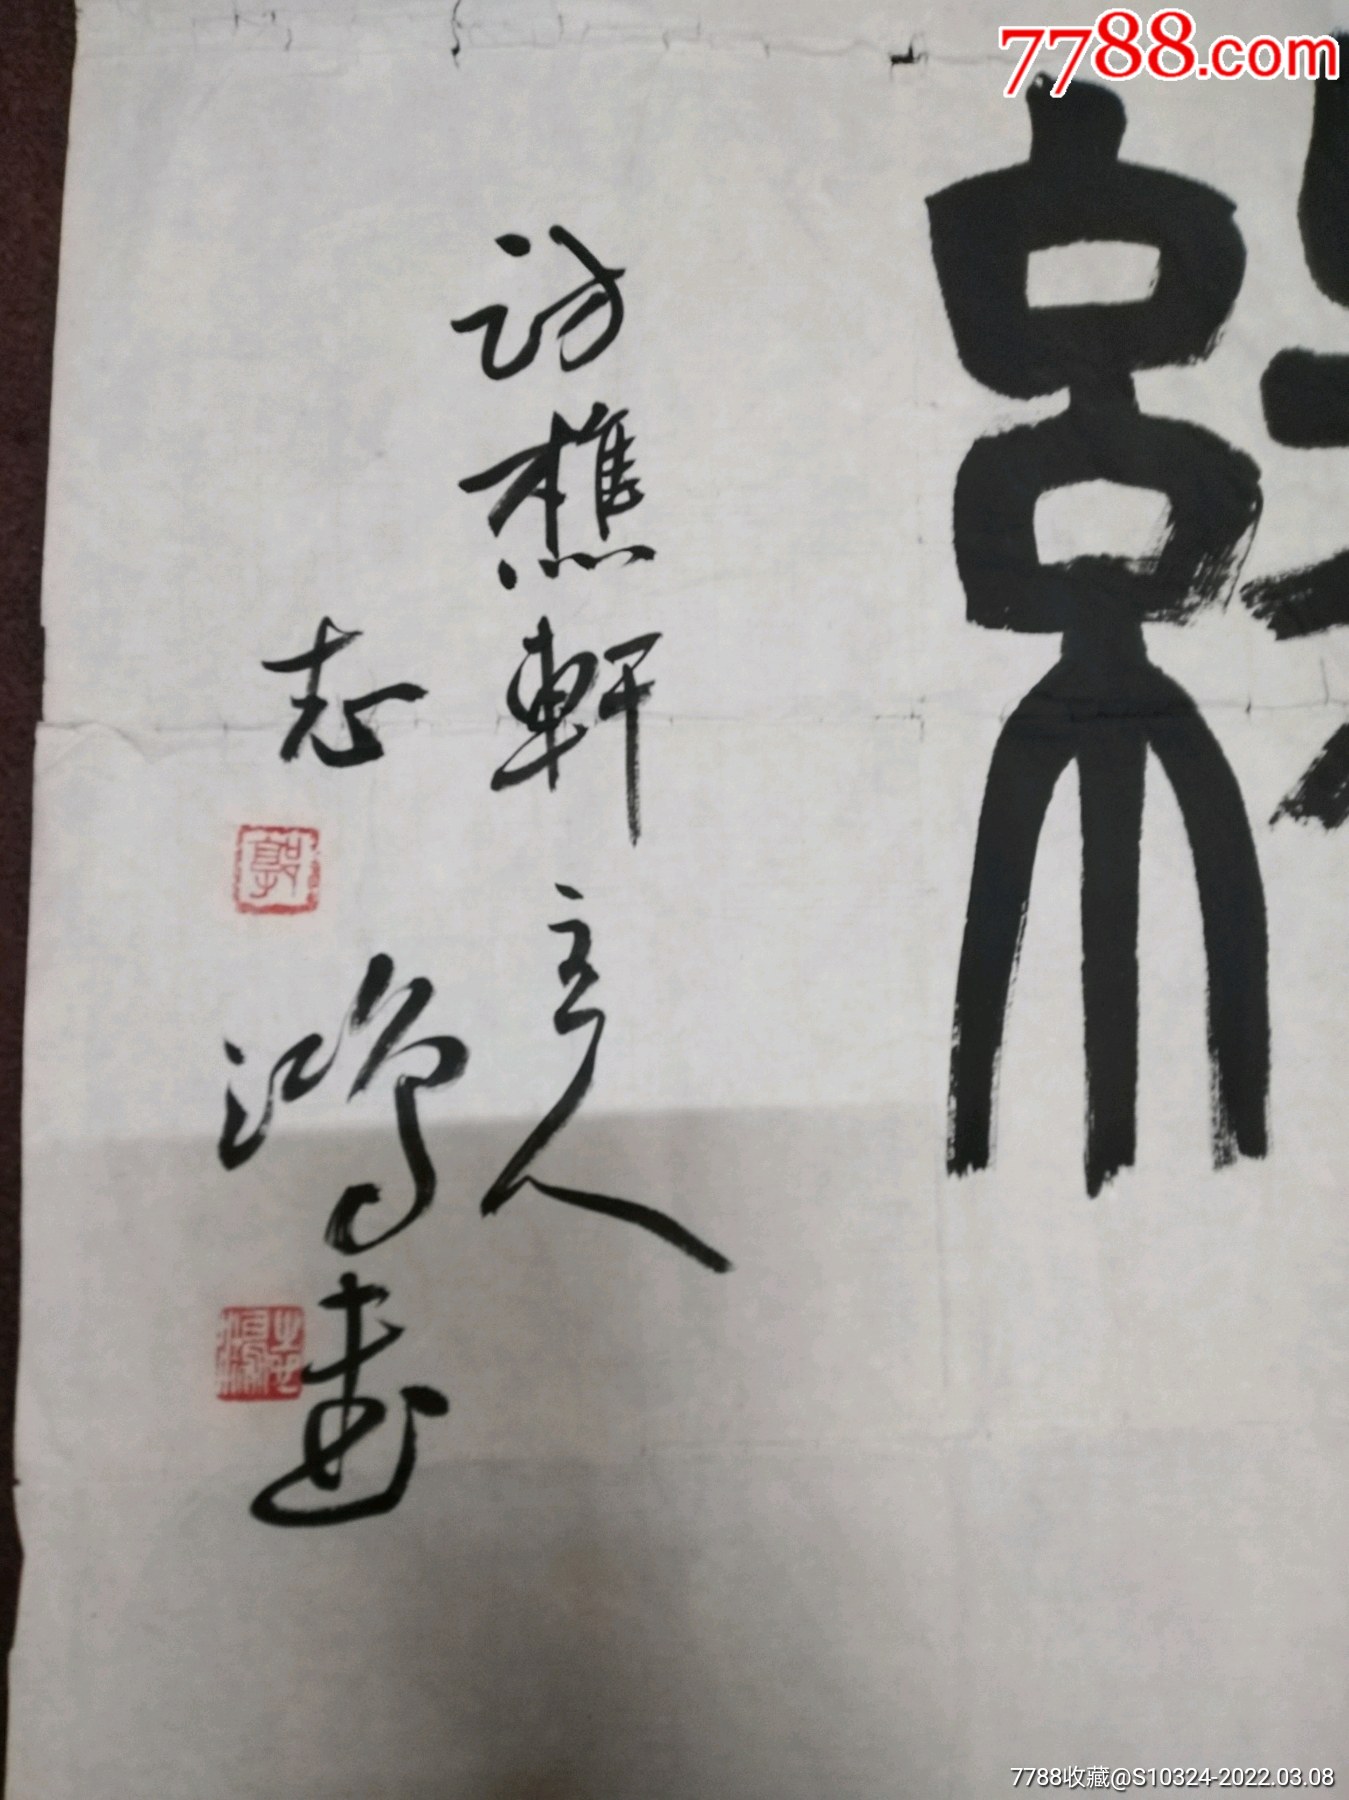 7788.com
访樵軒主人
志鸿書
郭
志鸿
7788收藏@S10324-2022.03.08